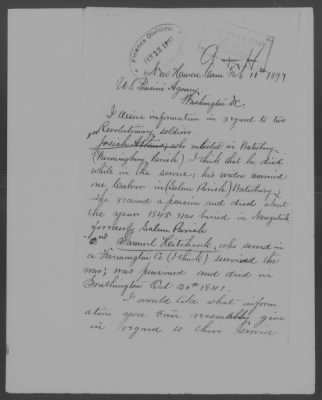 Finance Division
FEB 13 1897
New Haven Conn Feb 11th 1897
U.S. Pension Agency
Washington DC.
I desire information in regard to two
Revolutionary soldiers
1st
Josiah who enlisted in Waterbury
(Farmingbury Parish) I think that he died
while in the service; his widow married
one in (Salem Parish) Waterbury,
she received a pension and died about
the year 1845 was buried in Naugatuck
formerly Salem Parish
2nd Samuel Hitchcock, who served in
a Farmington Co (I think) survived the
war; was pensioned and died in
Southington Oct 26th 1841.
I would like what inform
ation you can reasonably give
in regard to their service